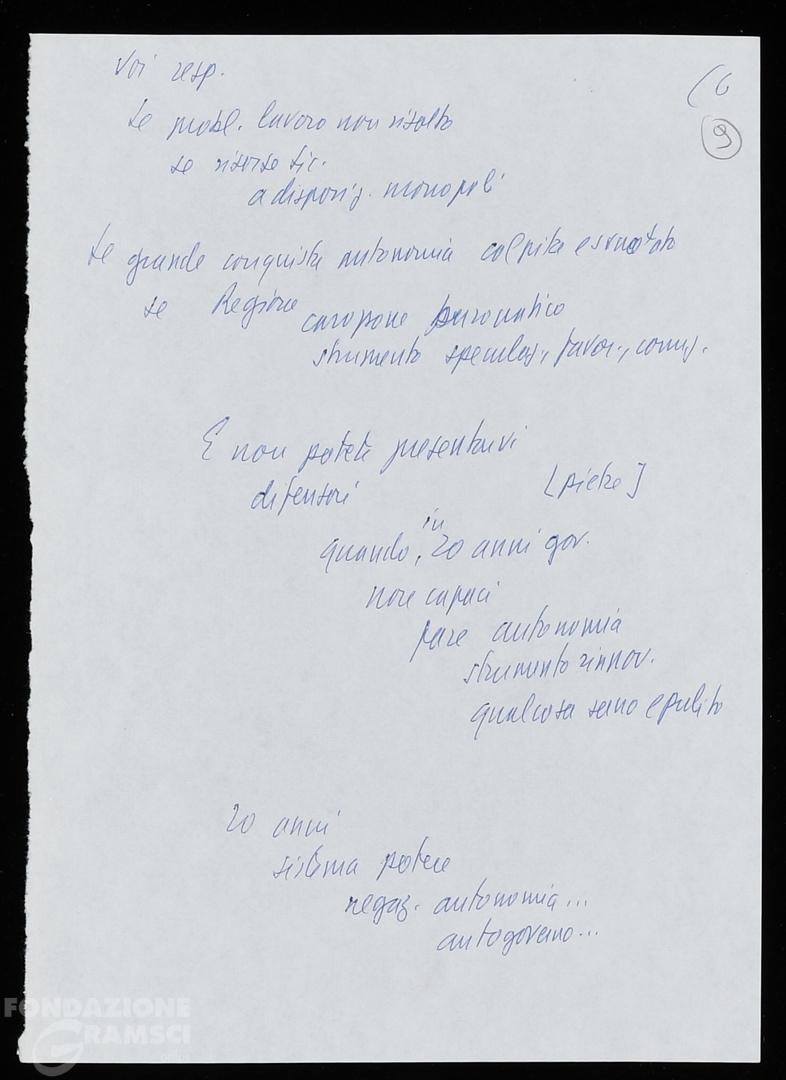 Voi resp.
(6
9
se probl. lavoro non risolto
se risorse sic.
a disposiz. monopoli
se grande conquista autonomia colpita e svuotata
se Regione
carrozzone burocratico
strumento speculaz., favor.,
E non potete presentarvi
difensori [pietre]
quando, in 20 anni gov.
non capaci
fare autonomia
strumento rinnov.
qualcosa sano e pulito
20 anni
sistema potere
negaz. autonomia...
autogoverno...
FONDAZIONE
GRAMSCI
onlus